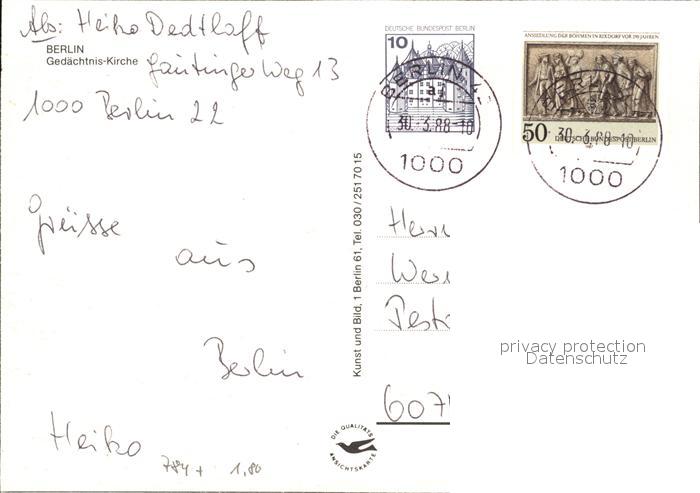 Abs: Heiko Dedtlaff
BERLIN
Gedächtnis-Kirche
Gautinger Weg 13
1000 Berlin 22
Grüsse
aus
Berlin
Heiko
784+ 1,80
Kunst und Bild, 1 Berlin 61, Tel. 030/251 70 15
DEUTSCHE BUNDESPOST BERLIN
10
BERLIN
30.-3.88-10
1000
ANSIEDLUNG DER BÖHMEN IN RIXDORF VOR 250 JAHREN
50 DEUTSCHE BUNDESPOST BERLIN
30.-3.88-10
1000
Herr
Wer
Post
607
privacy protection
Datenschutz
DIE QUALITÄTS
ANSICHTSKARTE